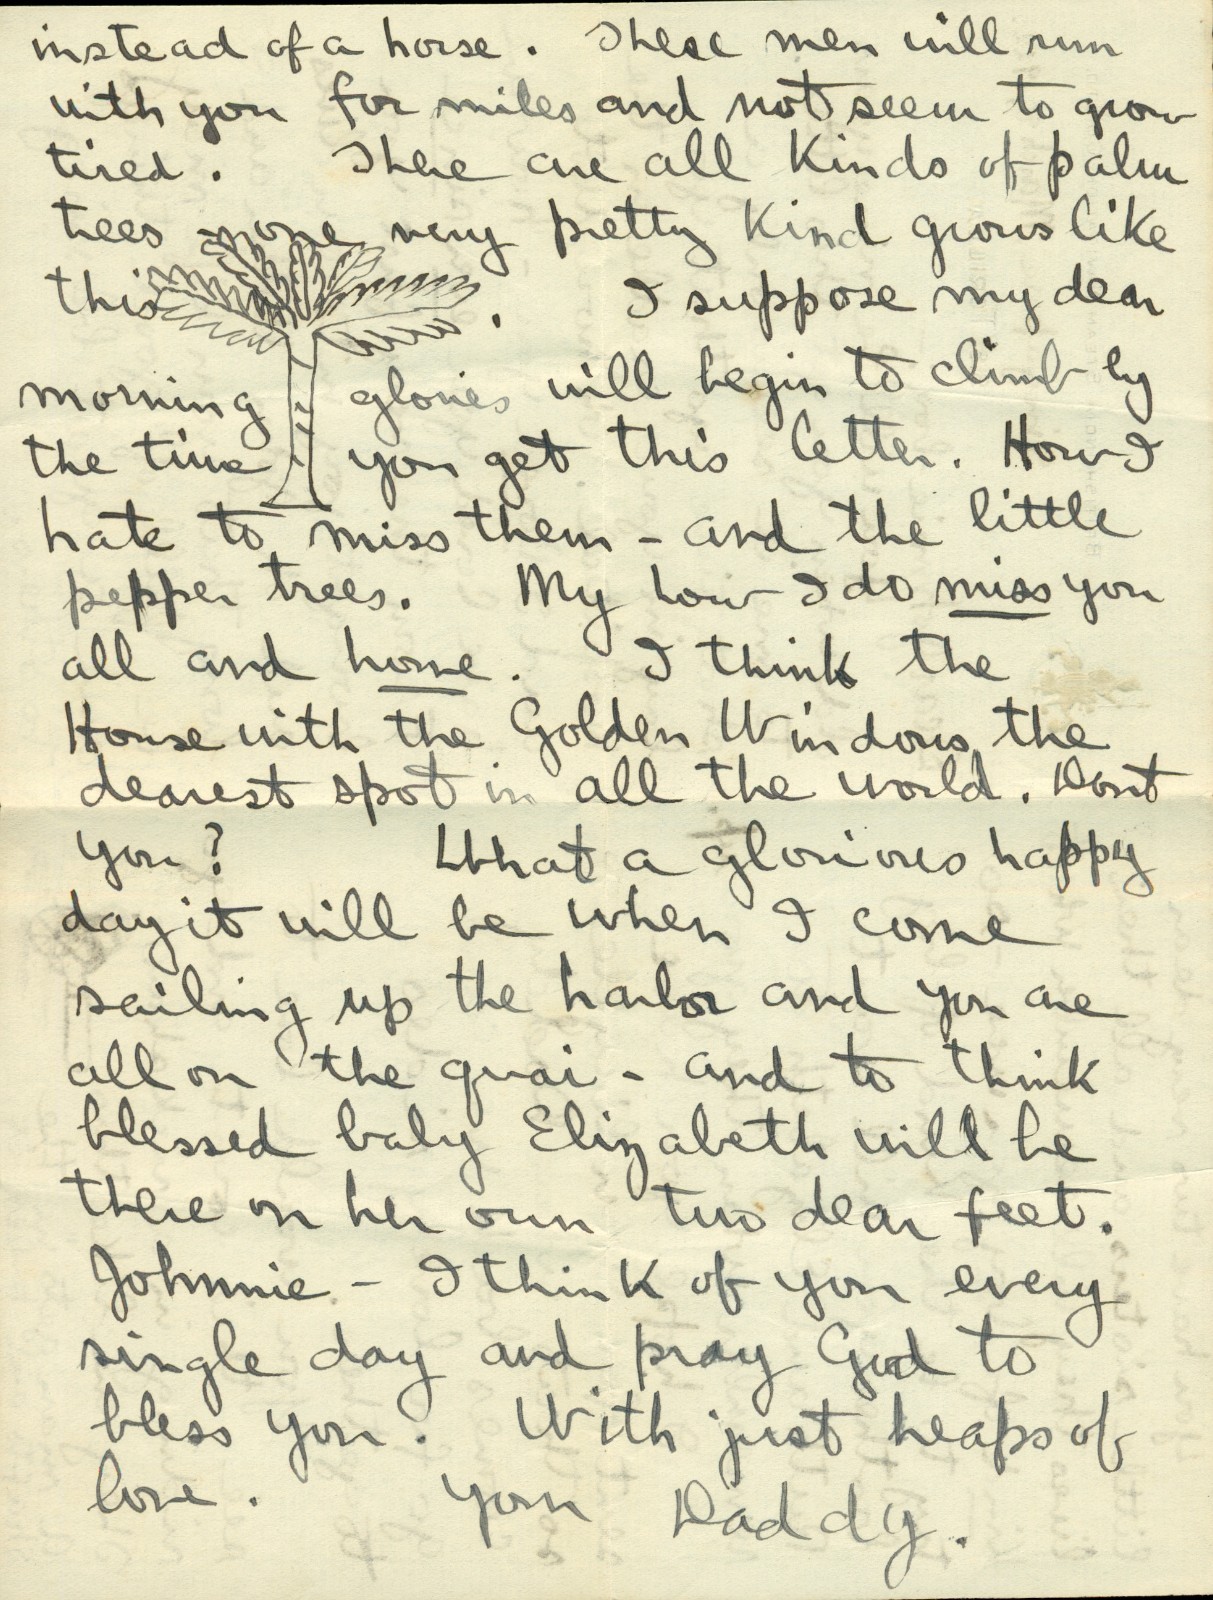 instead of a horse. These men will run
with you for miles and not seem to grow
tired. There are all kinds of palm
trees one very pretty kind grows like
this . I suppose my dear
morning glories will begin to climb by
the time you get this letter. How I
hate to miss them - and the little
pepper trees. My how I do miss you
all and home. I think the
House with the Golden Windows, the
dearest spot in all the world. Dont
you? What a glorious happy
day it will be when I come
sailing up the harbor and you are
all on the quai - and to think
blessed baby Elizabeth will be
there on her own two dear feet.
Johnnie - I think of you every
single day and pray God to
bless you. With just heaps of
love. Your Daddy.